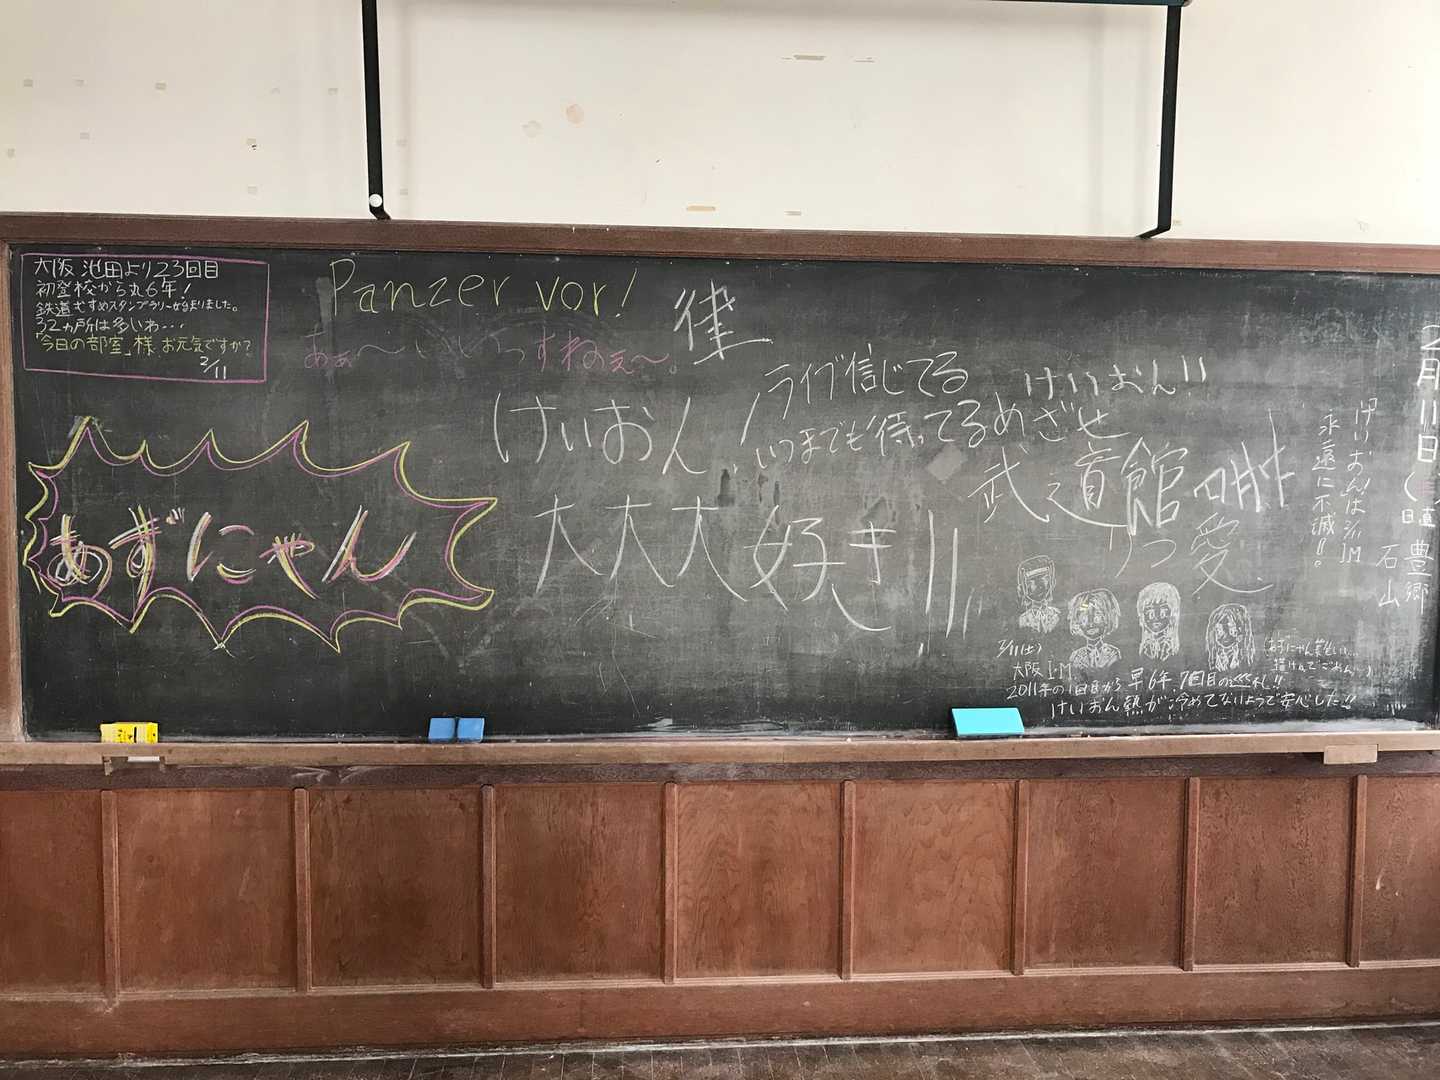 大阪 池田より23回目
初登校から丸6年!
鉄道むすめスタンプラリー始まりました。
32ヵ所は多いわ…
「今日の部室」様 お元気ですか?
2/11
Panzer vor!
あぁ〜いいっすねぇ〜。
律
けいおん!
大大大好き!!
あずにゃん
ライブ信じてる
いつまでも待ってる
けいおん!!
めざせ
武道館
愛
けいおんは
永遠に不滅!!。
2月11日(
日直 豊郷
石山
2/11(土)
大阪 I・M
2011年の1回目から早6年、7回目の巡礼!!
けいおん熱が冷めてないようで安心した!!
(あずにゃん難しい…
描けんでごめん…)